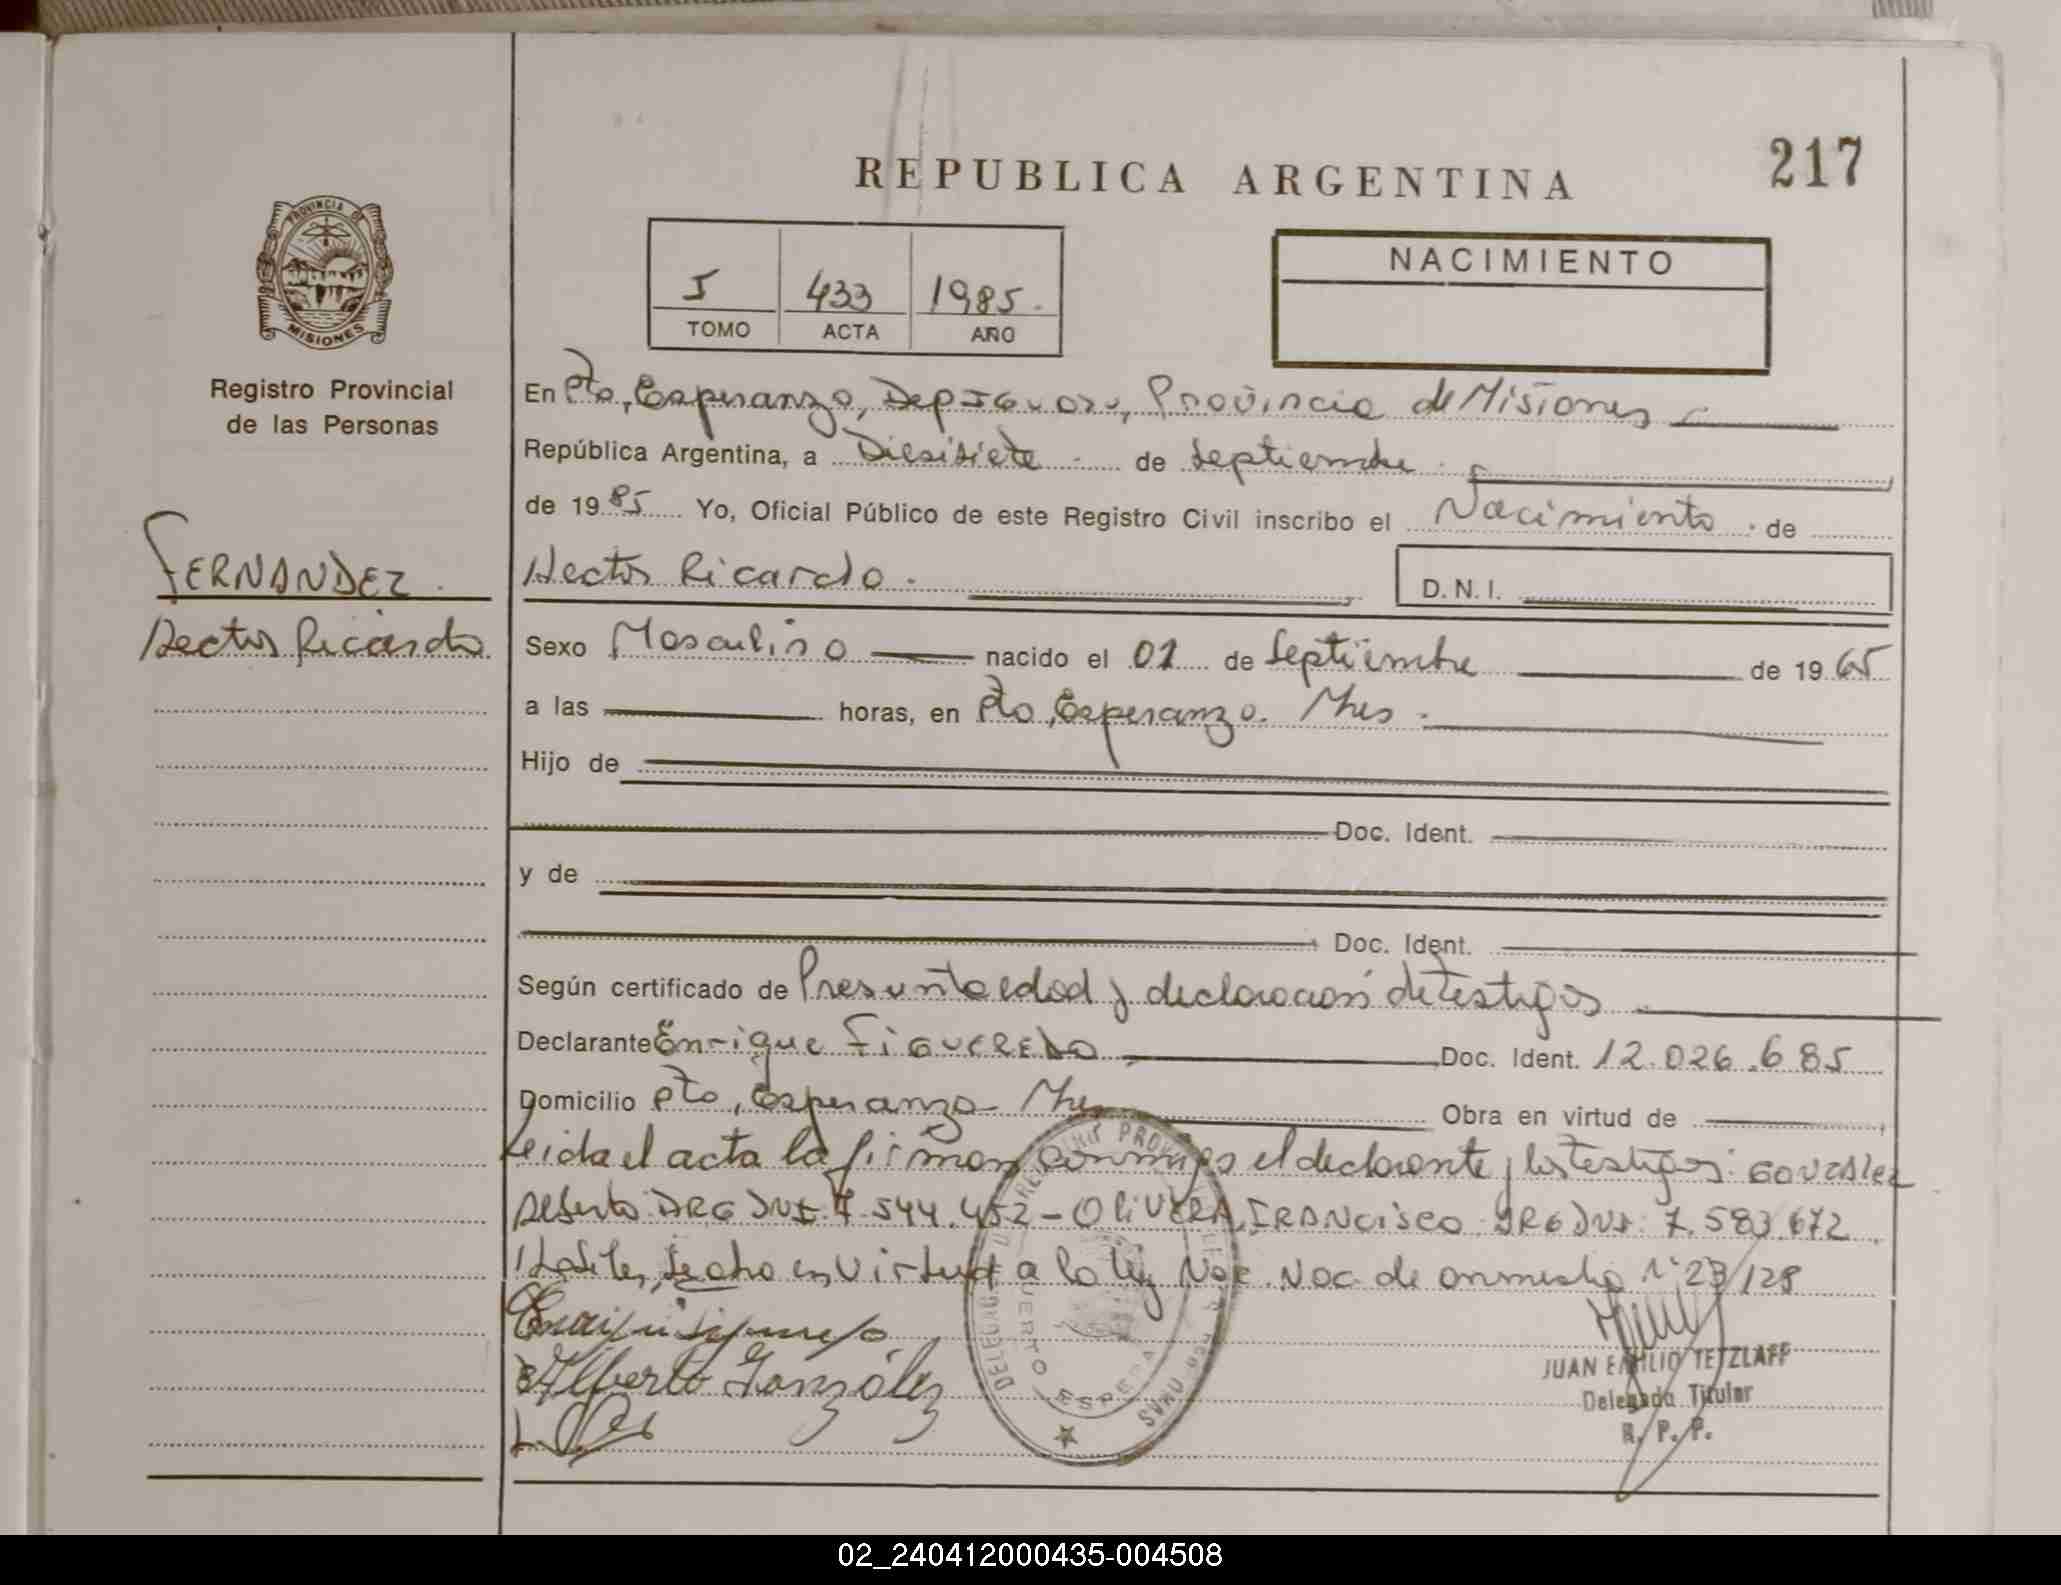 217
REPUBLICA ARGENTINA
PROVINCIA DE
MISIONES
Registro Provincial
de las Personas
I 433 1985.
TOMO ACTA AÑO
NACIMIENTO
FERNANDEZ.
Hector Ricardo
En Pto, Esperanza, Dep Iguazu, Provincia de Misiones
República Argentina, a Diesisiete de Septiembre
de 1985 Yo, Oficial Público de este Registro Civil inscribo el Nacimiento de
Hector Ricardo. D.N.I.
Sexo Masculino nacido el 01 de Septiembre de 1965
a las horas, en Pto, Esperanza. Mnes.
Hijo de
Doc. Ident.
y de
Doc. Ident.
Según certificado de Presunta edad y declaracion de testigos
Declarante Enrique FIGUEREDO Doc. Ident. 12.026.685
Domicilio Pto, Esperanza Mnes Obra en virtud de
Leida el acta la firman conmigo el declarante y los testigos: GONZALEZ
Alberto ARG DNI 7.544.452 - OLIVERA, FRANCISCO ARG DNI: 7.583.672
en virtud a la ley Nac. Nac. de amnestia Nº 23/128
Alberto González
PUERTO ESPERA
JUAN EMILIO TETZLAFF
Delegado Titular
R. P. P.
02_240412000435-004508